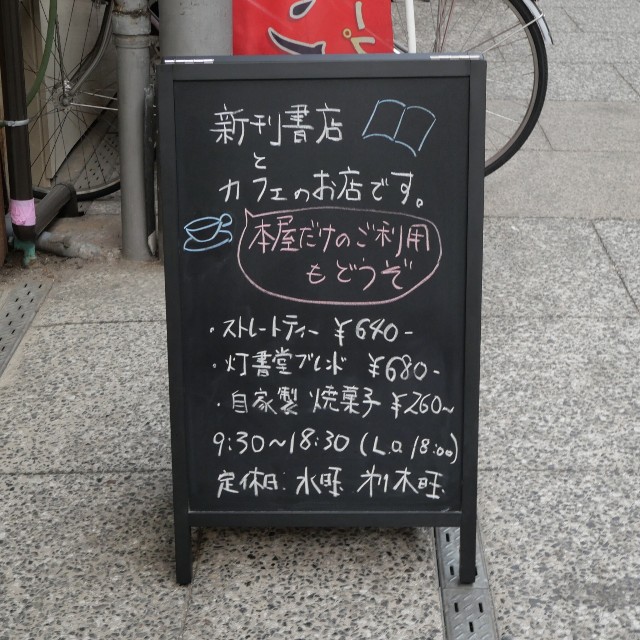 新刊書店
と
カフェのお店です。
本屋だけのご利用
もどうぞ
・ストレートティー ¥640-
・灯書堂ブレンド ¥680-
・自家製 焼菓子 ¥260~
9:30~18:30 (L.o. 18:00)
定休日: 水旺 木旺